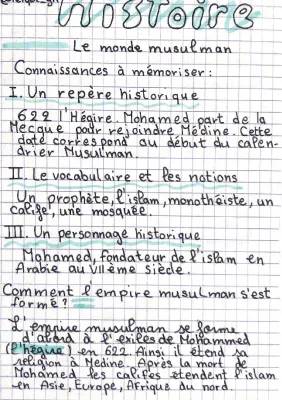 Histoire
Le monde musulman
Connaissances à mémoriser :
I. Un repère historique
622 l'Hégire. Mohamed part de la
Mecque pour rejoindre Médine. Cette
date correspond au début du calen-
drier Musulman.
II. Le vocabulaire et les notions
Un prophète, l'islam, monothéiste, un
calife, une mosquée.
III. Un personnage historique
Mohamed, fondateur de l'islam en
Arabie au VIIème siècle.
Comment l'empire musulman s'est
formé ?
L'empire musulman se forme
d'abord à l'exiles de Mohammed
(l'hégire) en 622. Ainsi il étend sa
religion à Médine. Après la mort de
Mohamed les califes étendent l'islam
en Asie, Europe, Afrique du nord.